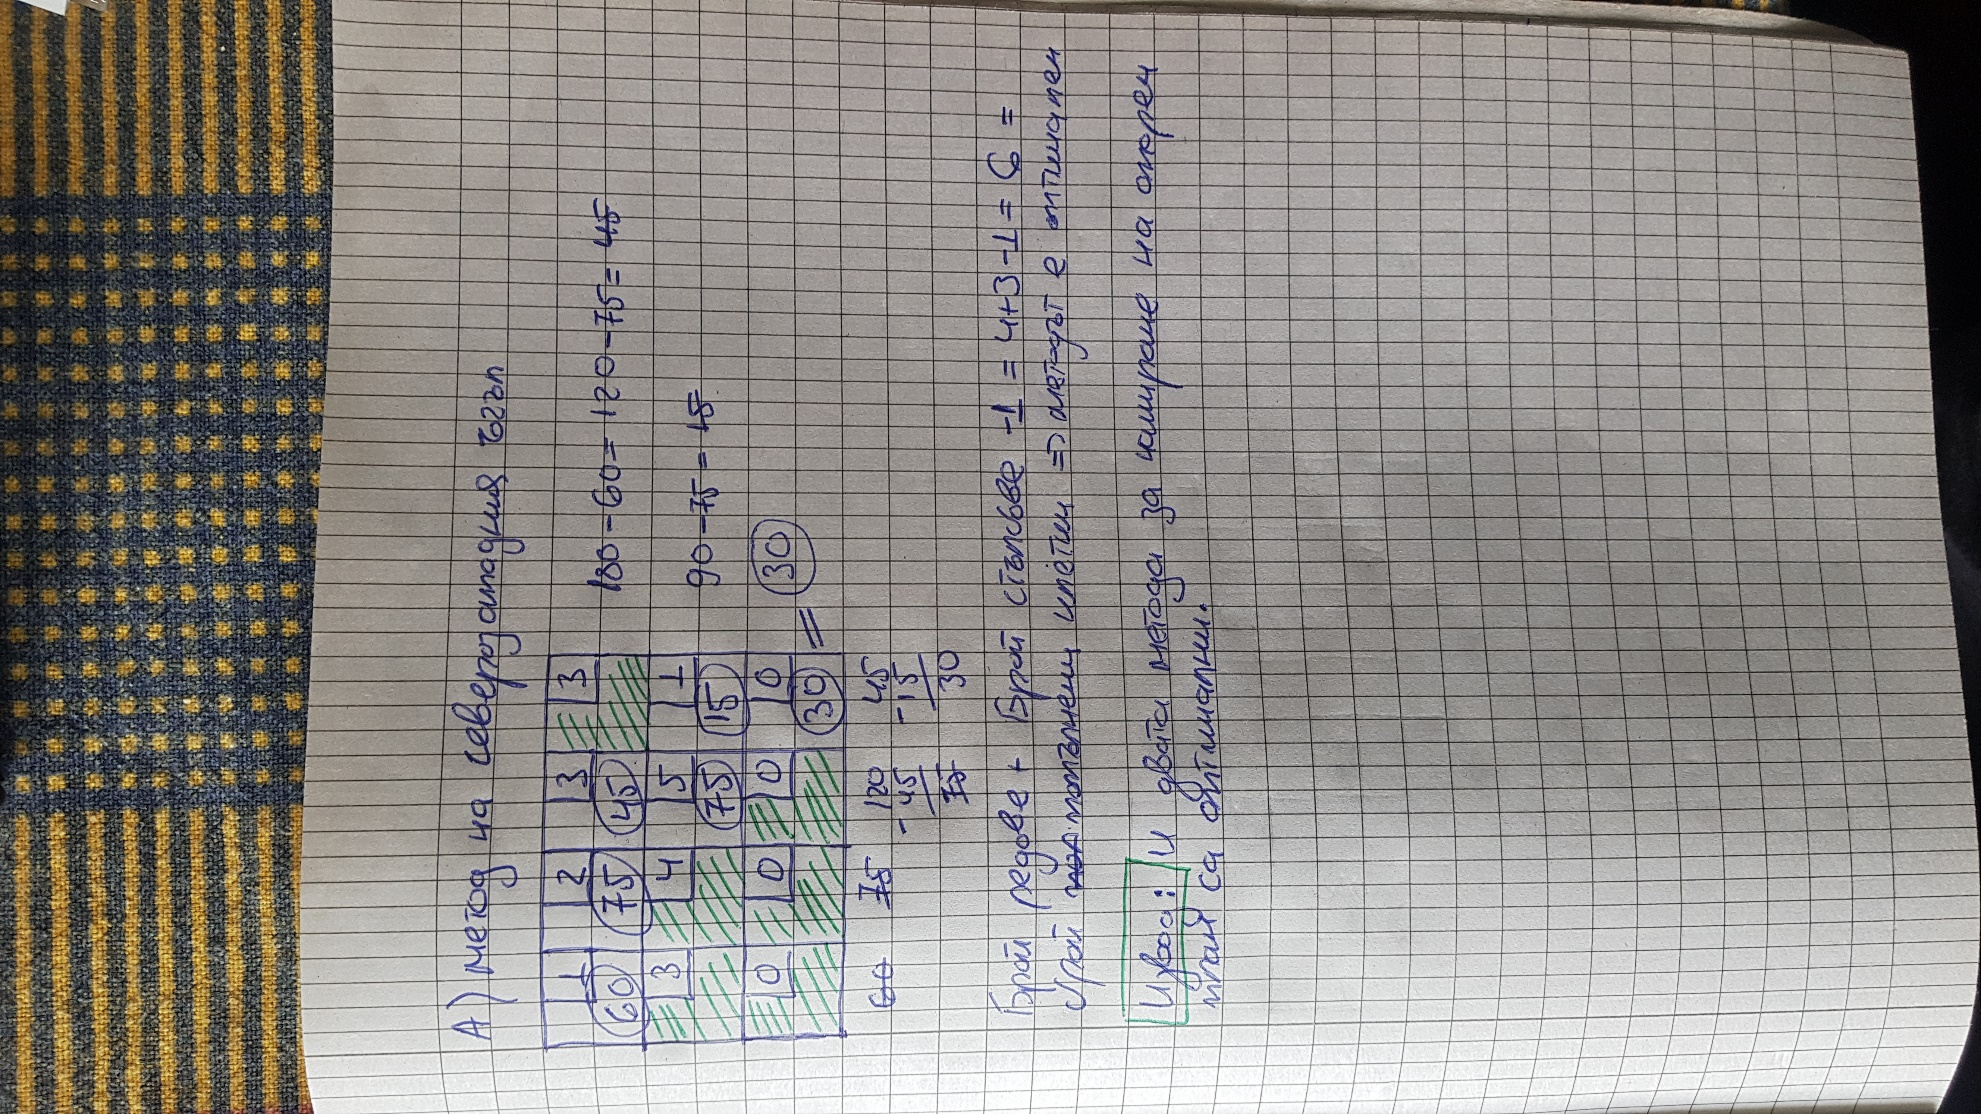 А) метод на северозападния ъгъл
1 2 3 3
60 75 45
180-60=120-75=45
3 4 5 1
75 15
90-75=15
0 0 0 0
30 = 30
60 75 120 45
-45 -15
75 30
Брой редове + Брой стълбове -1 = 4+3-1=6=
брой попълнени клетки => методът е оптимален
Извод: И двата метода за намиране на опорен
план са оптимални.